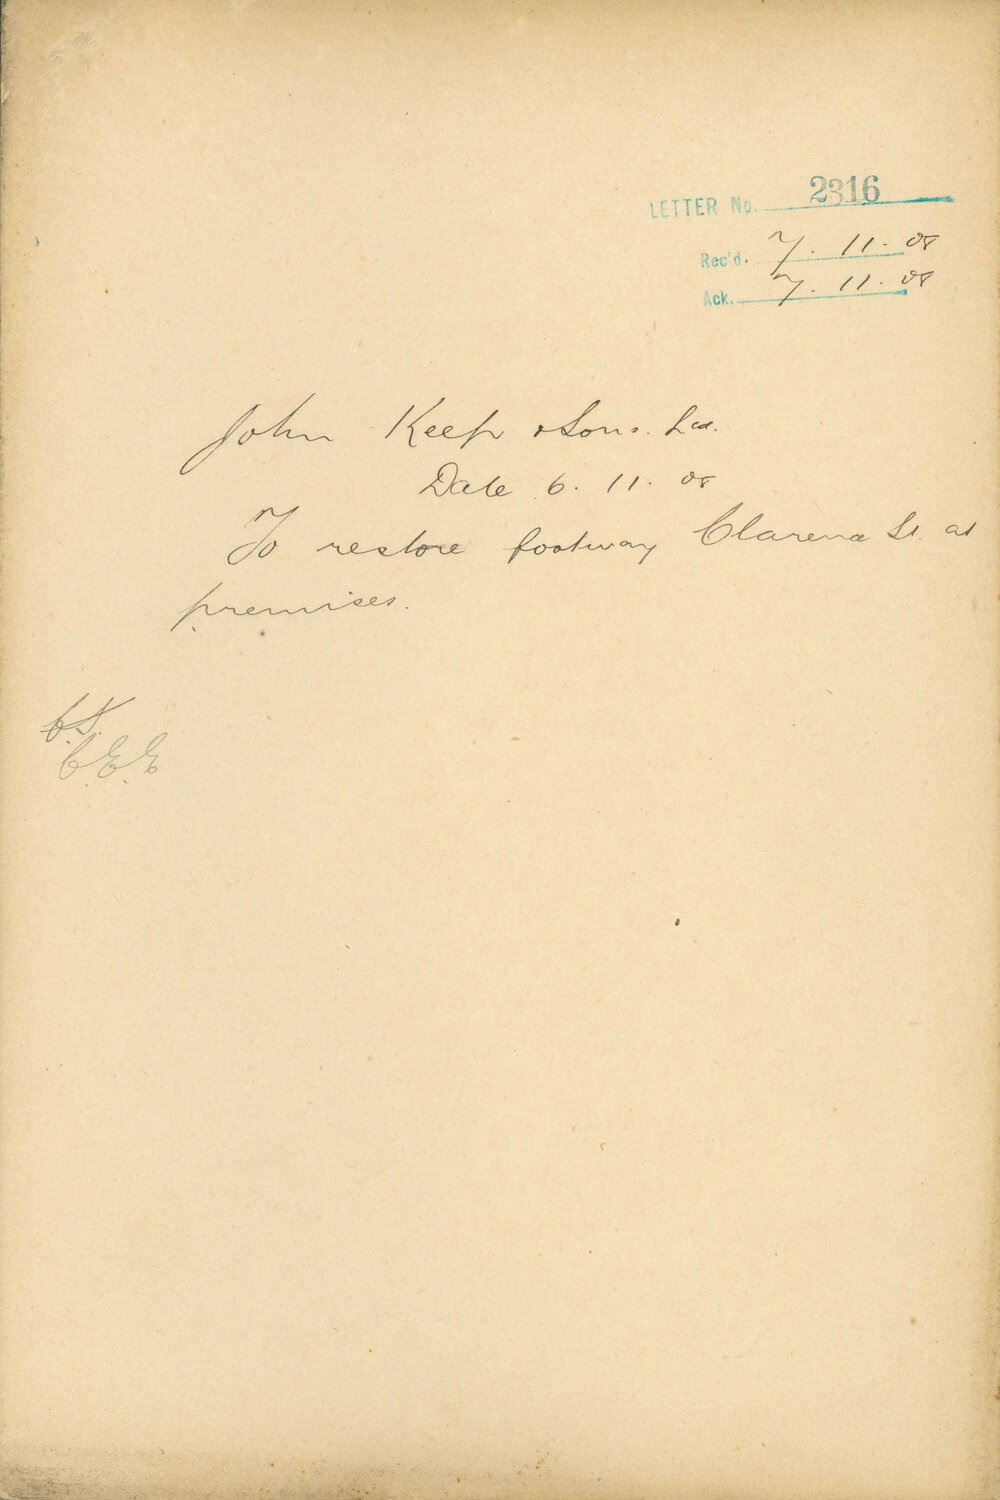 LETTER No. 2316
Rec'd. 7. 11. 08
Ack. 7. 11. 08
John Keep & Sons. Ltd.
Date 6. 11. 08
To restore footway Clarence St. at
premises.
C.S.
C.E.E